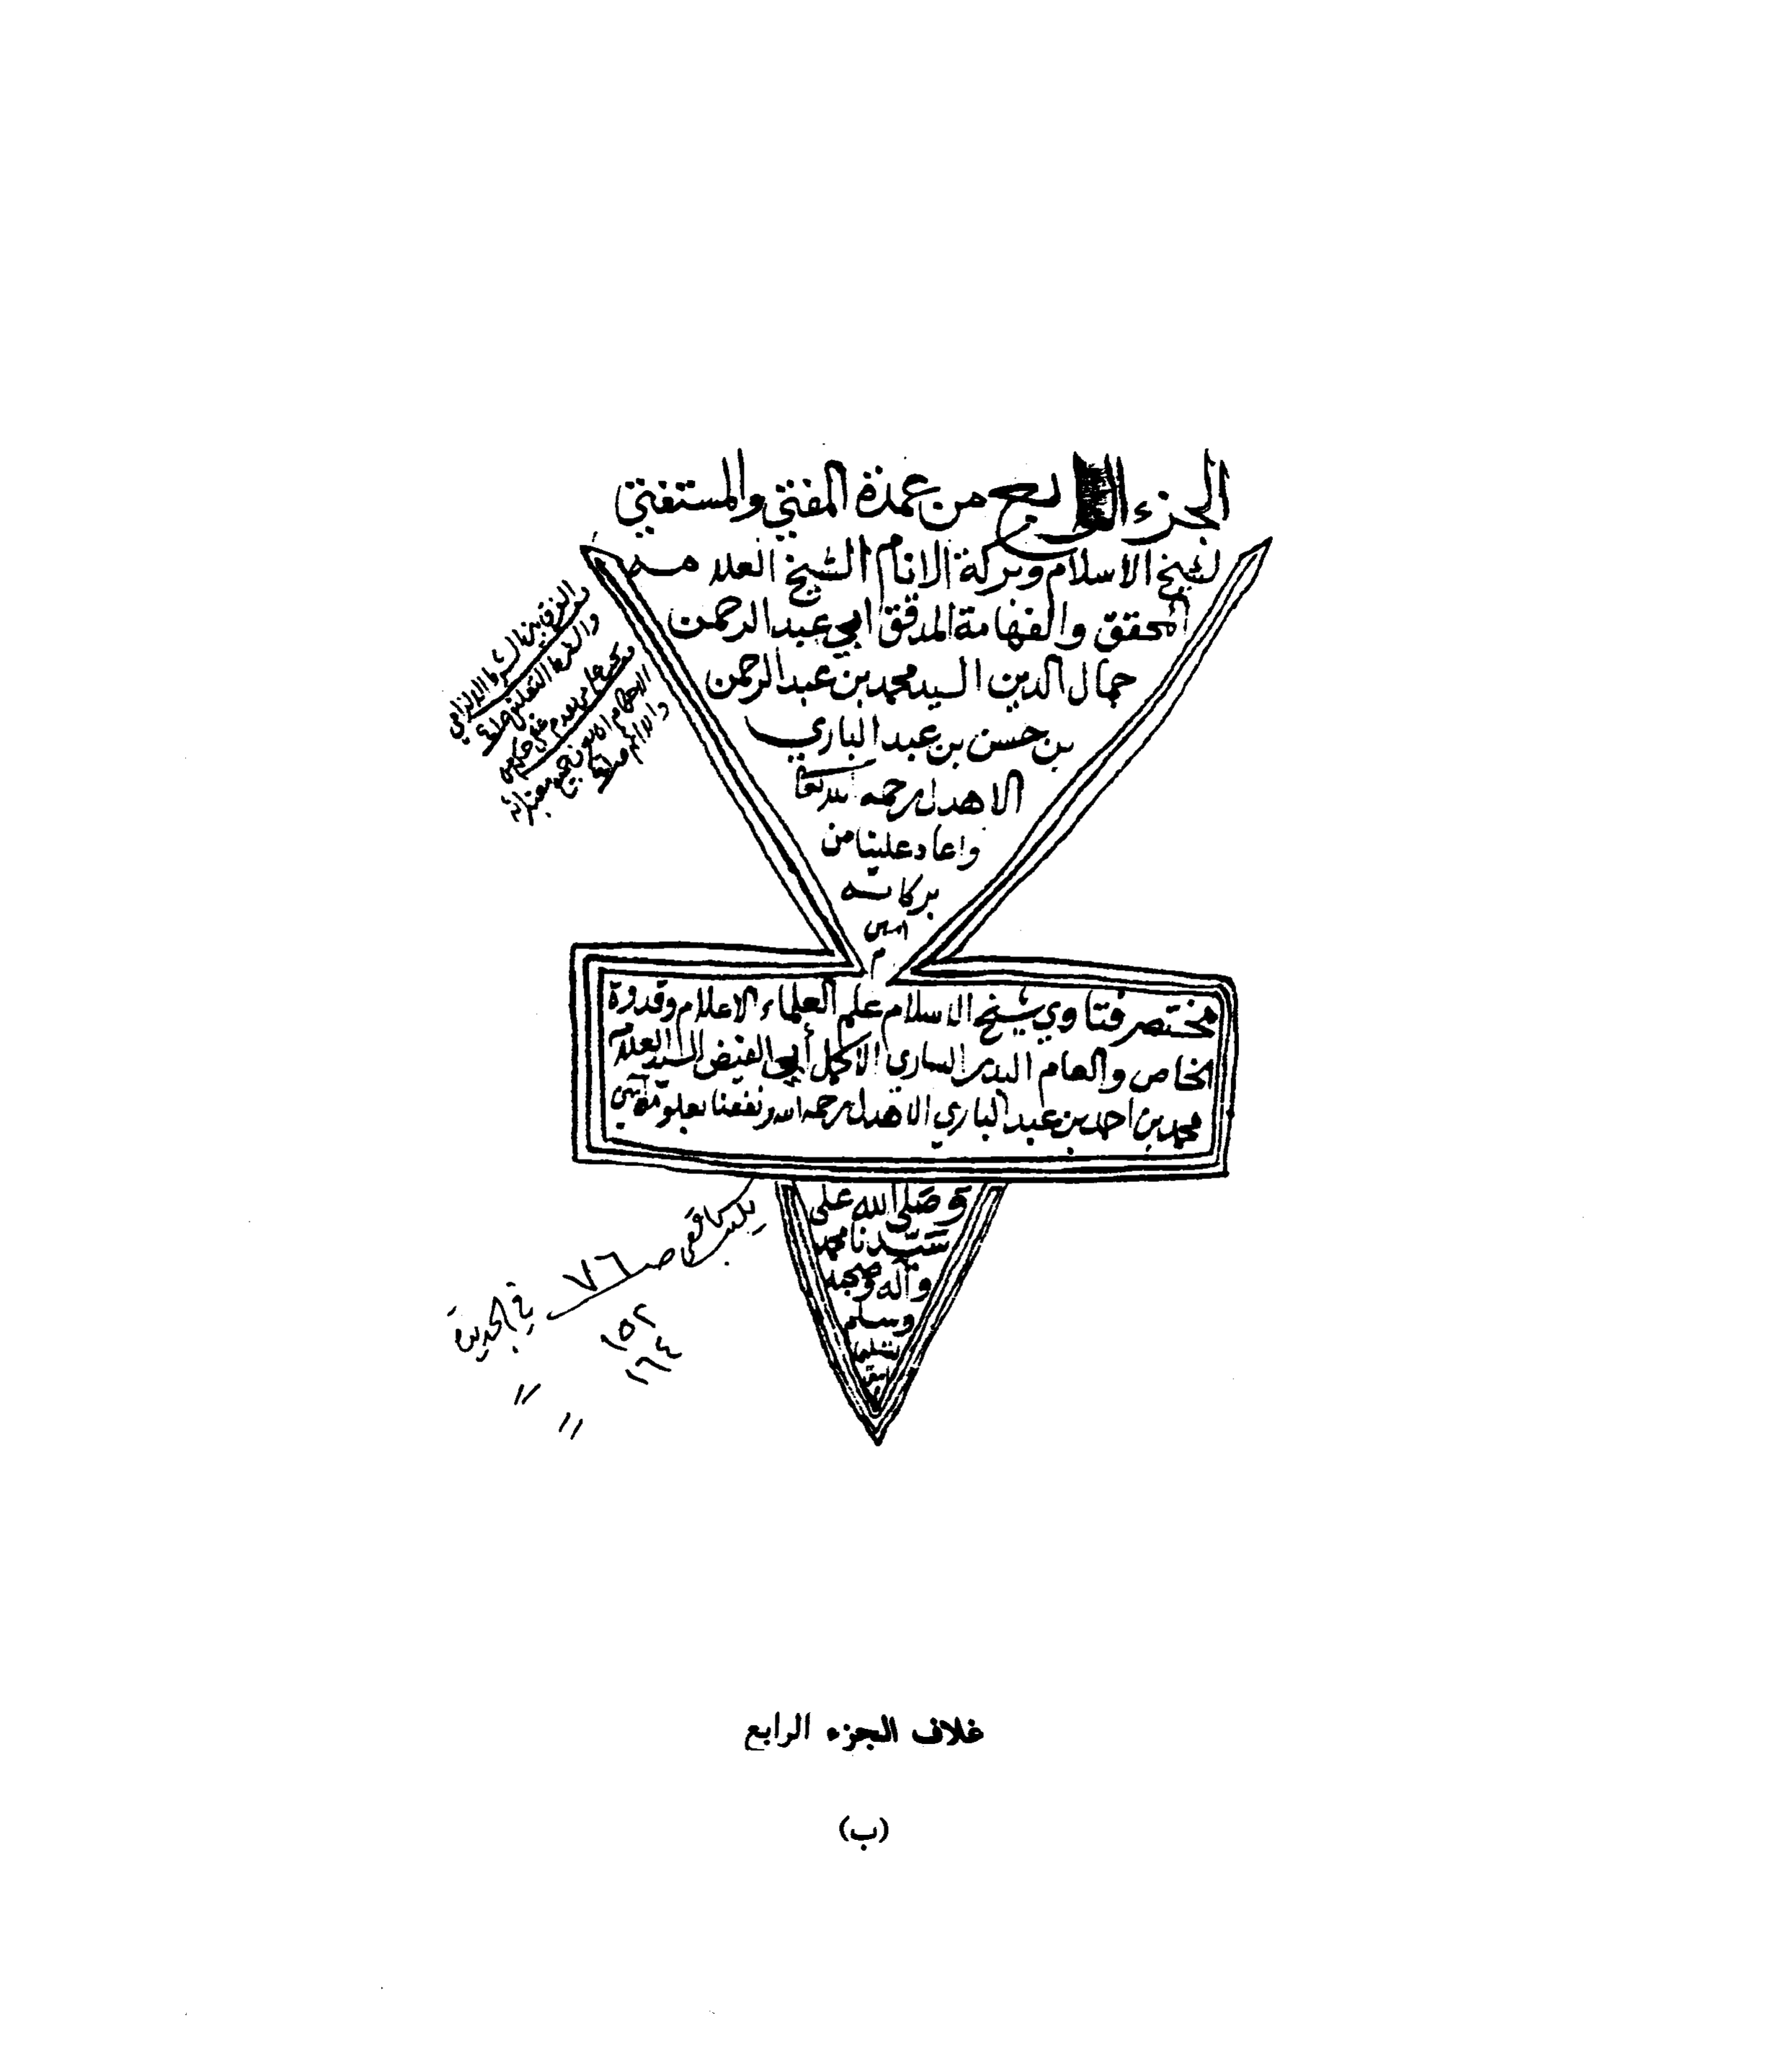 الجزء الرابع من عمدة المفتي والمستفتي
لشيخ الاسلام وبركة الانام الشيخ العلامه
المحقق والفهامة المدقق ابي عبد الرحمن
جمال الدين السيد محمد بن عبد الرحمن
بن حسن بن عبد الباري
الاهدل رحمه الله تعا
واعاد علينا من
بركاته
امين
م
مختصر فتاوي شيخ الاسلام علم العلماء الاعلام وقدوة
الخاص والعام البدر الساري الاكمل أبي الفيض السيد العلامة
محمد بن احمد بن عبد الباري الاهدل رحمه الله ونفعنا بعلومه آمين
وصلى الله على
سيدنا محمد
وآله وصحبه
وسلم
تسليما
ص ٧٦
١٥٢
١٦٤
" "
غلاف الجزء الرابع
(ب)